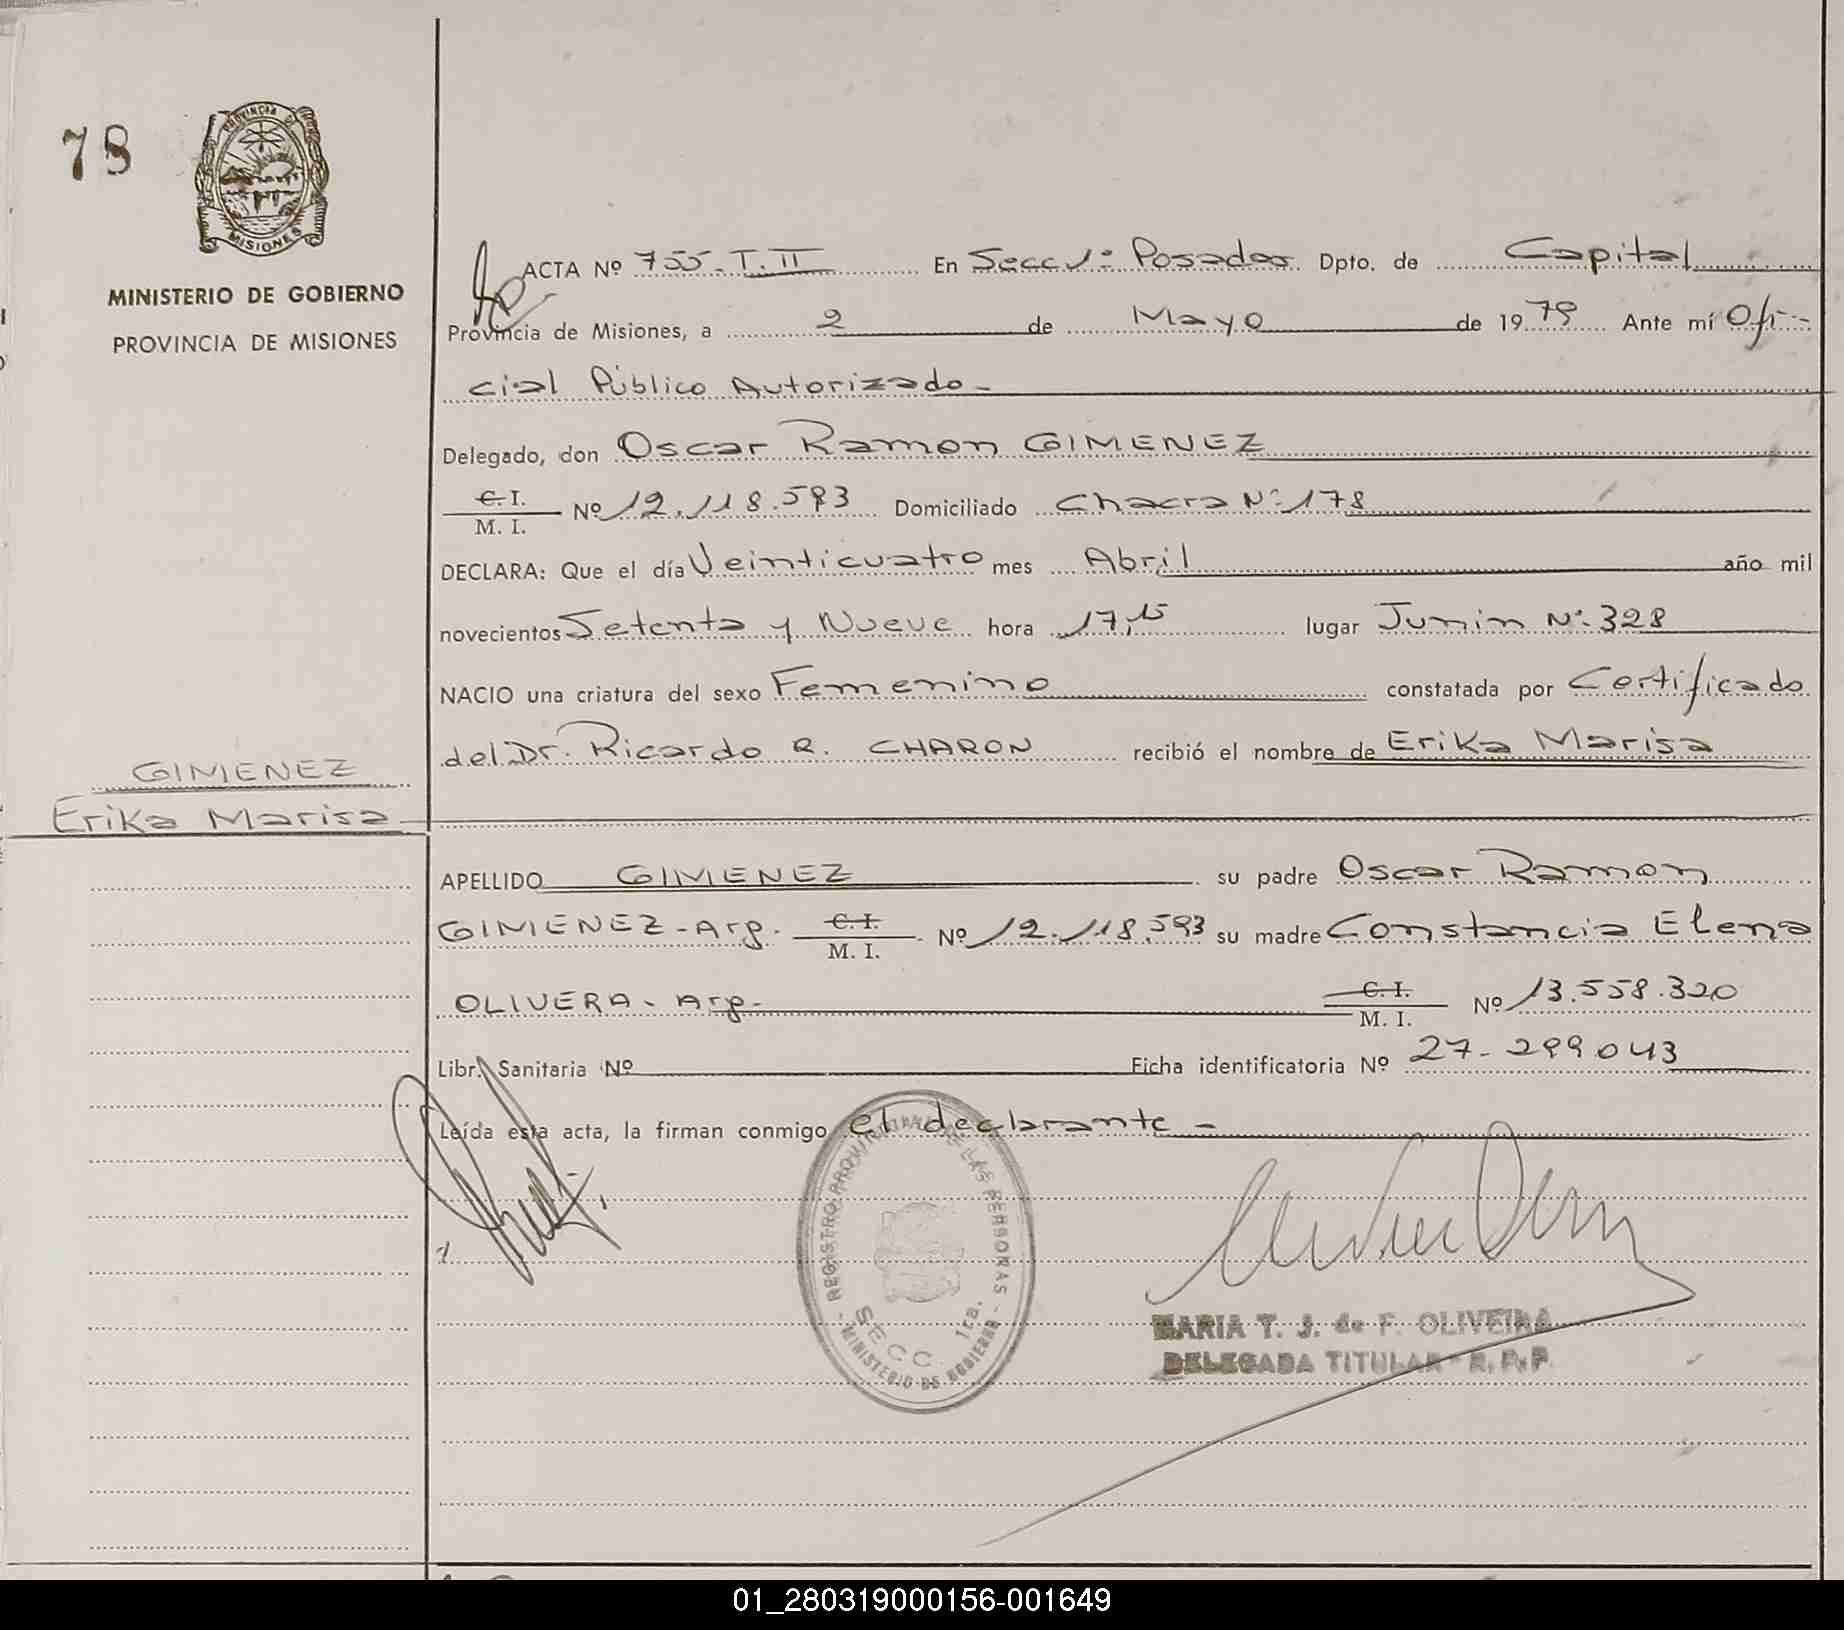 78
PROVINCIA DE
MISIONES
MINISTERIO DE GOBIERNO
PROVINCIA DE MISIONES
ACTA Nº 755. T. II En Secc 1º Posadas Dpto. de Capital
Provincia de Misiones, a 2 de Mayo de 1979 Ante mí Ofi-
cial Público Autorizado-
Delegado, don Oscar Ramon GIMENEZ
C. I.
M. I. Nº 12.118.593 Domiciliado Chacra Nº 178
DECLARA: Que el día Veinticuatro mes Abril año mil
novecientos Setenta y Nueve hora 17,15 lugar Junin Nº 328
NACIO una criatura del sexo Femenino constatada por Certificado
del Dr. Ricardo R. CHARON recibió el nombre de Erika Marisa
GIMENEZ
Erika Marisa
APELLIDO GIMENEZ su padre Oscar Ramon
GIMENEZ - Arg. C. I.
M. I. Nº 12.118.593 su madre Constancia Elena
OLIVERA - Arg- C. I.
M. I. Nº 13.558.320
Libr. Sanitaria Nº Ficha identificatoria Nº 27-299043
Leída esta acta, la firman conmigo el declarante -
REGISTRO PROVINCIAL DE LAS PERSONAS
SECC. 1ra.
MINISTERIO DE GOBIERNO
MARIA T. J. de F. OLIVEIRA
DELEGADA TITULAR - R. P. P.
01_280319000156-001649